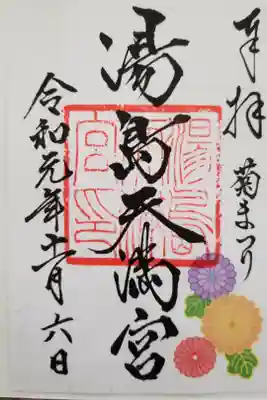 奉拝
菊まつり
湯島天満宮
令和元年十一月六日